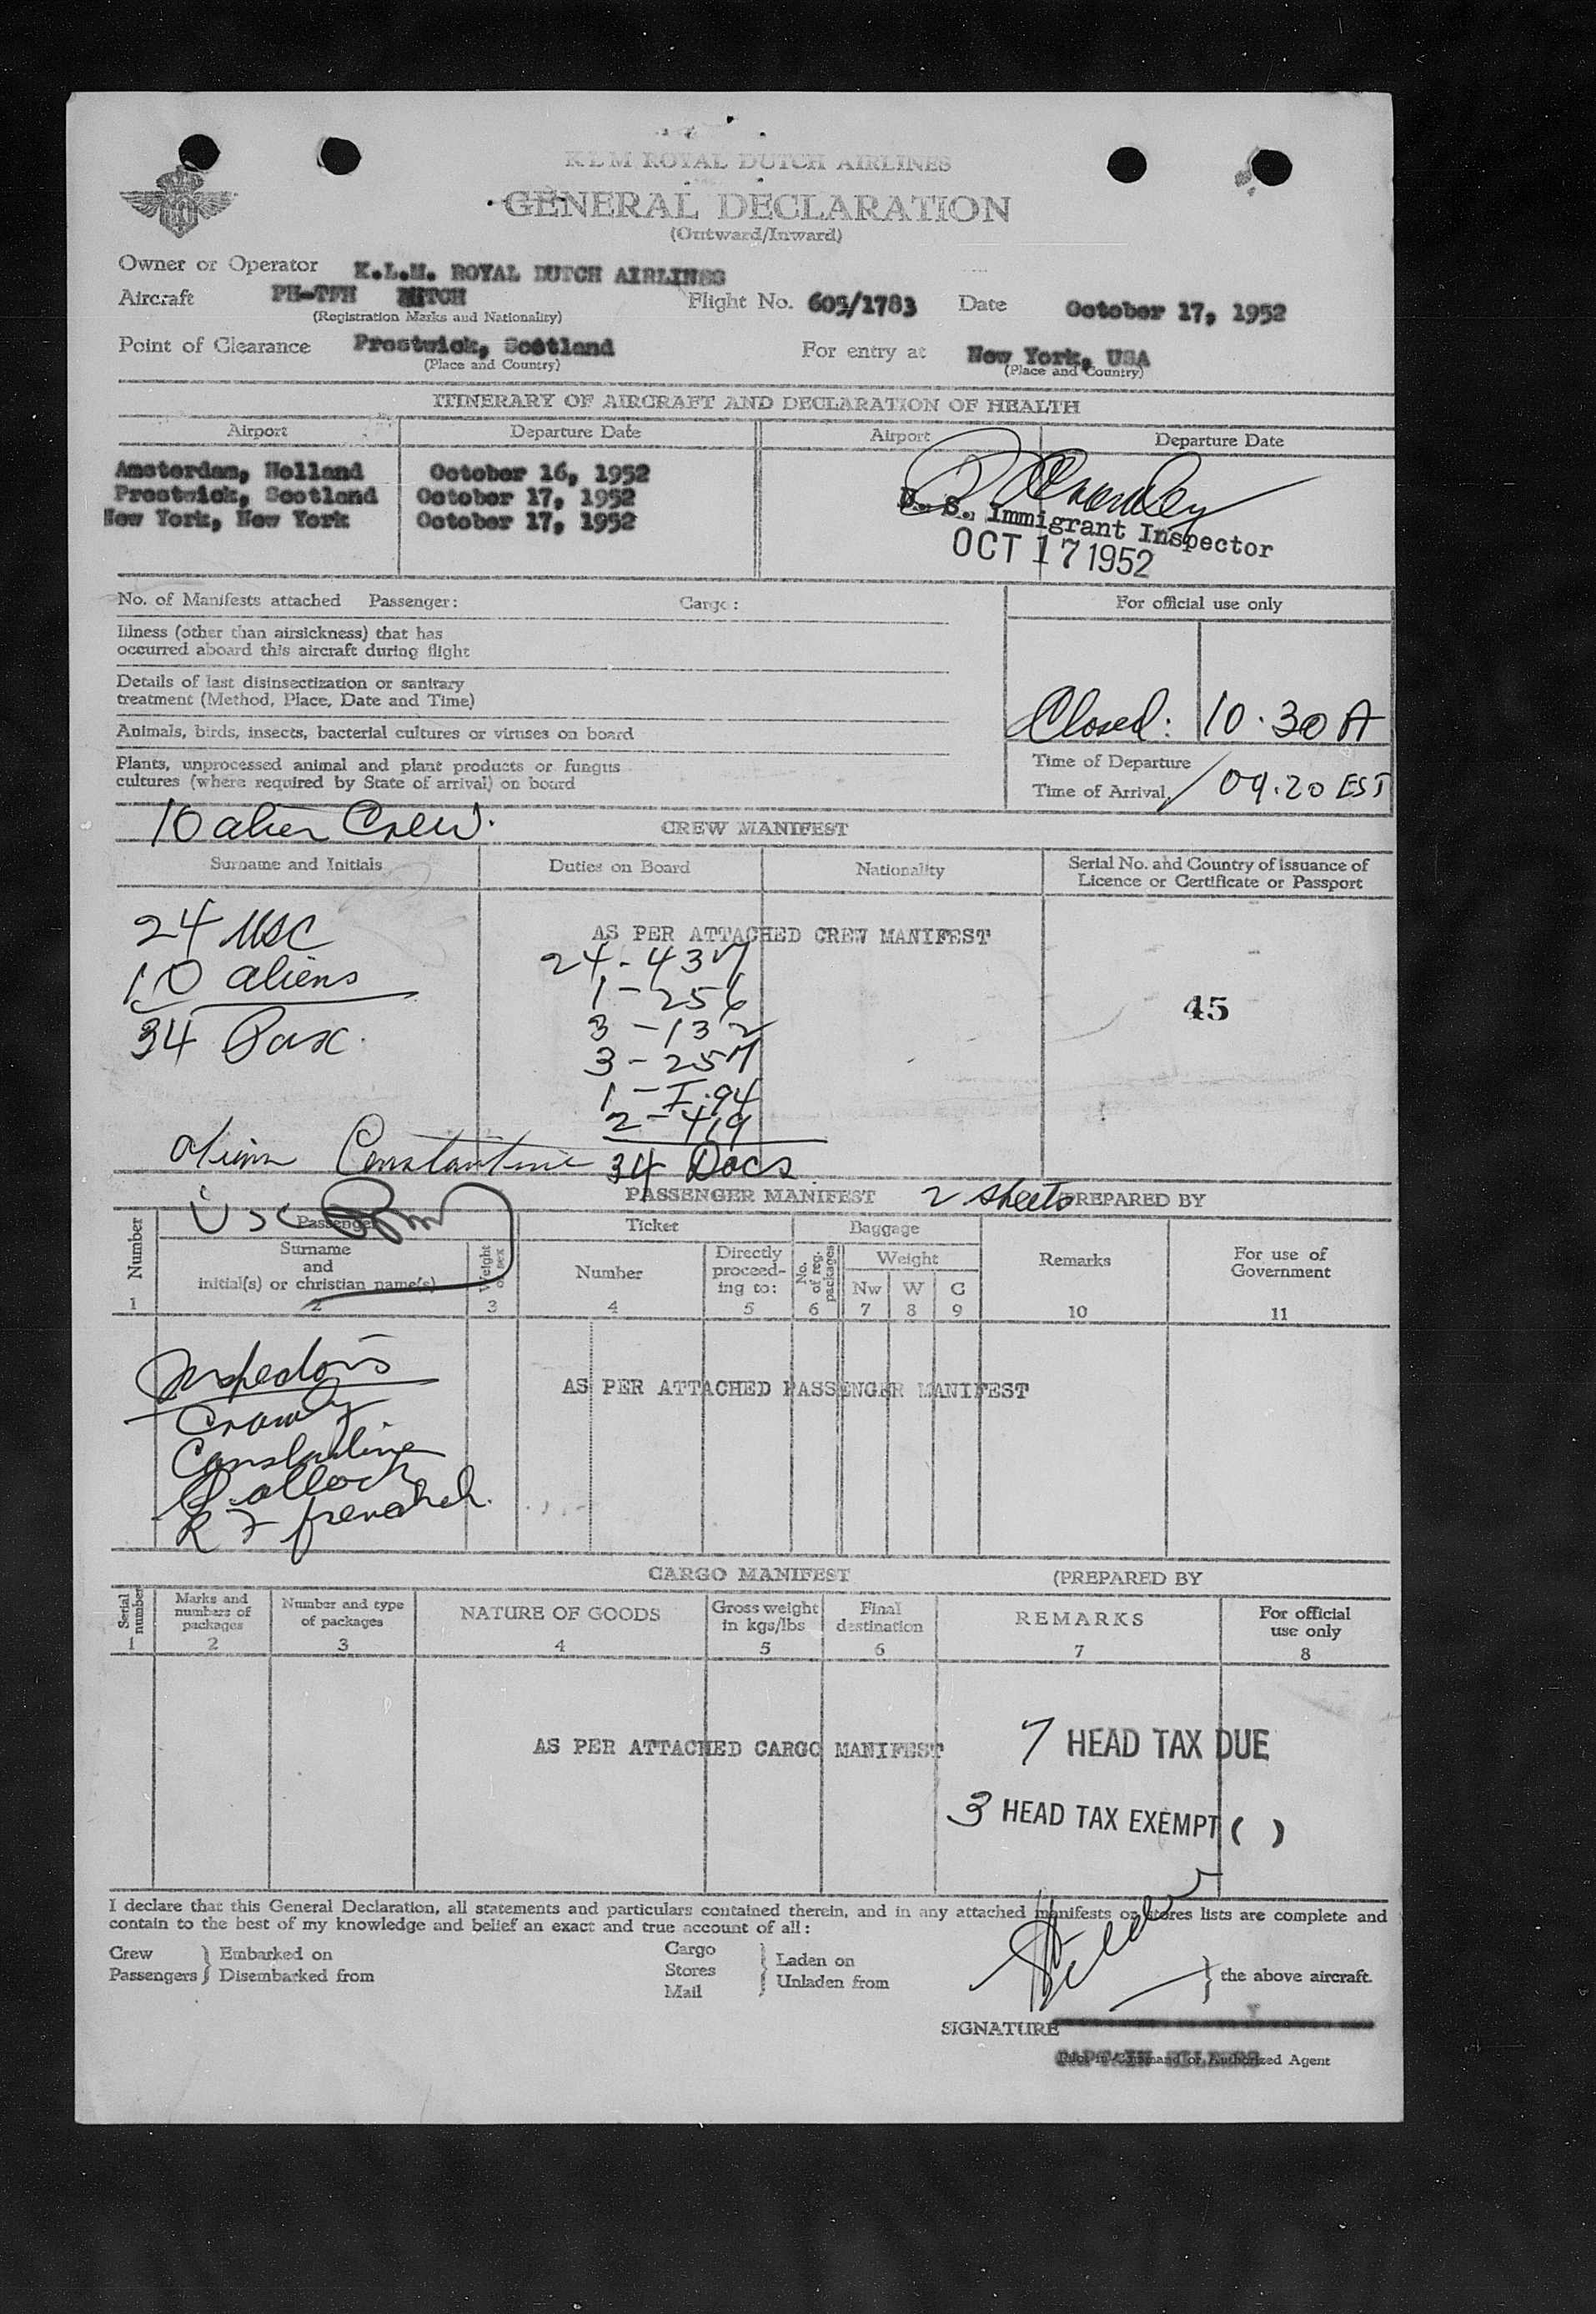 KLM ROYAL DUTCH AIRLINES
GENERAL DECLARATION
(Outward/Inward)
Owner or Operator K.L.M. ROYAL DUTCH AIRLINES
Aircraft PH-TFH DUTCH Flight No. 605/1783 Date October 17, 1952
(Registration Marks and Nationality)
Point of Clearance Prestwick, Scotland For entry at New York, USA
(Place and Country) (Place and Country)
ITINERARY OF AIRCRAFT AND DECLARATION OF HEALTH
Airport Departure Date Airport Departure Date
Amsterdam, Holland October 16, 1952
Prestwick, Scotland October 17, 1952
New York, New York October 17, 1952
U. S. Immigrant Inspector
OCT 17 1952
No. of Manifests attached Passenger: Cargo: For official use only
Illness (other than airsickness) that has
occurred aboard this aircraft during flight
Details of last disinsectization or sanitary
treatment (Method, Place, Date and Time)
Closed: 10.30 A
Animals, birds, insects, bacterial cultures or viruses on board
Plants, unprocessed animal and plant products or fungus
cultures (where required by State of arrival) on board
Time of Departure
Time of Arrival 09.20 EST
10 alien Crew.
CREW MANIFEST
Surname and Initials Duties on Board Nationality Serial No. and Country of issuance of
Licence or Certificate or Passport
24 USC
10 aliens
34 Pax.
AS PER ATTACHED CREW MANIFEST
24 - 437
1 - 256
3 - 132
3 - 257
1 - I.94
2 - 419
34 Docs
45
Constantine
USC
PASSENGER MANIFEST 2 sheets PREPARED BY
Number Passenger Ticket Baggage Remarks For use of
Government
Surname
and
initial(s) or christian name(s)
Weight or sex
Number
Directly
proceed-
ing to:
No. of reg. packages
Weight
Nw W C
1 2 3 4 5 6 7 8 9 10 11
Inspectors
Crowley
Constantine
AS PER ATTACHED PASSENGER MANIFEST
CARGO MANIFEST (PREPARED BY
Serial number
Marks and
numbers of
packages
Number and type
of packages
NATURE OF GOODS
Gross weight
in kgs/lbs
Final
destination
REMARKS
For official
use only
1 2 3 4 5 6 7 8
AS PER ATTACHED CARGO MANIFEST
7 HEAD TAX DUE
3 HEAD TAX EXEMPT ( )
I declare that this General Declaration, all statements and particulars contained therein, and in any attached manifests or stores lists are complete and
contain to the best of my knowledge and belief an exact and true account of all:
Crew
Passengers
Embarked on
Disembarked from
Cargo
Stores
Mail
Laden on
Unladen from
the above aircraft.
SIGNATURE
Pilot in Command or Authorized Agent